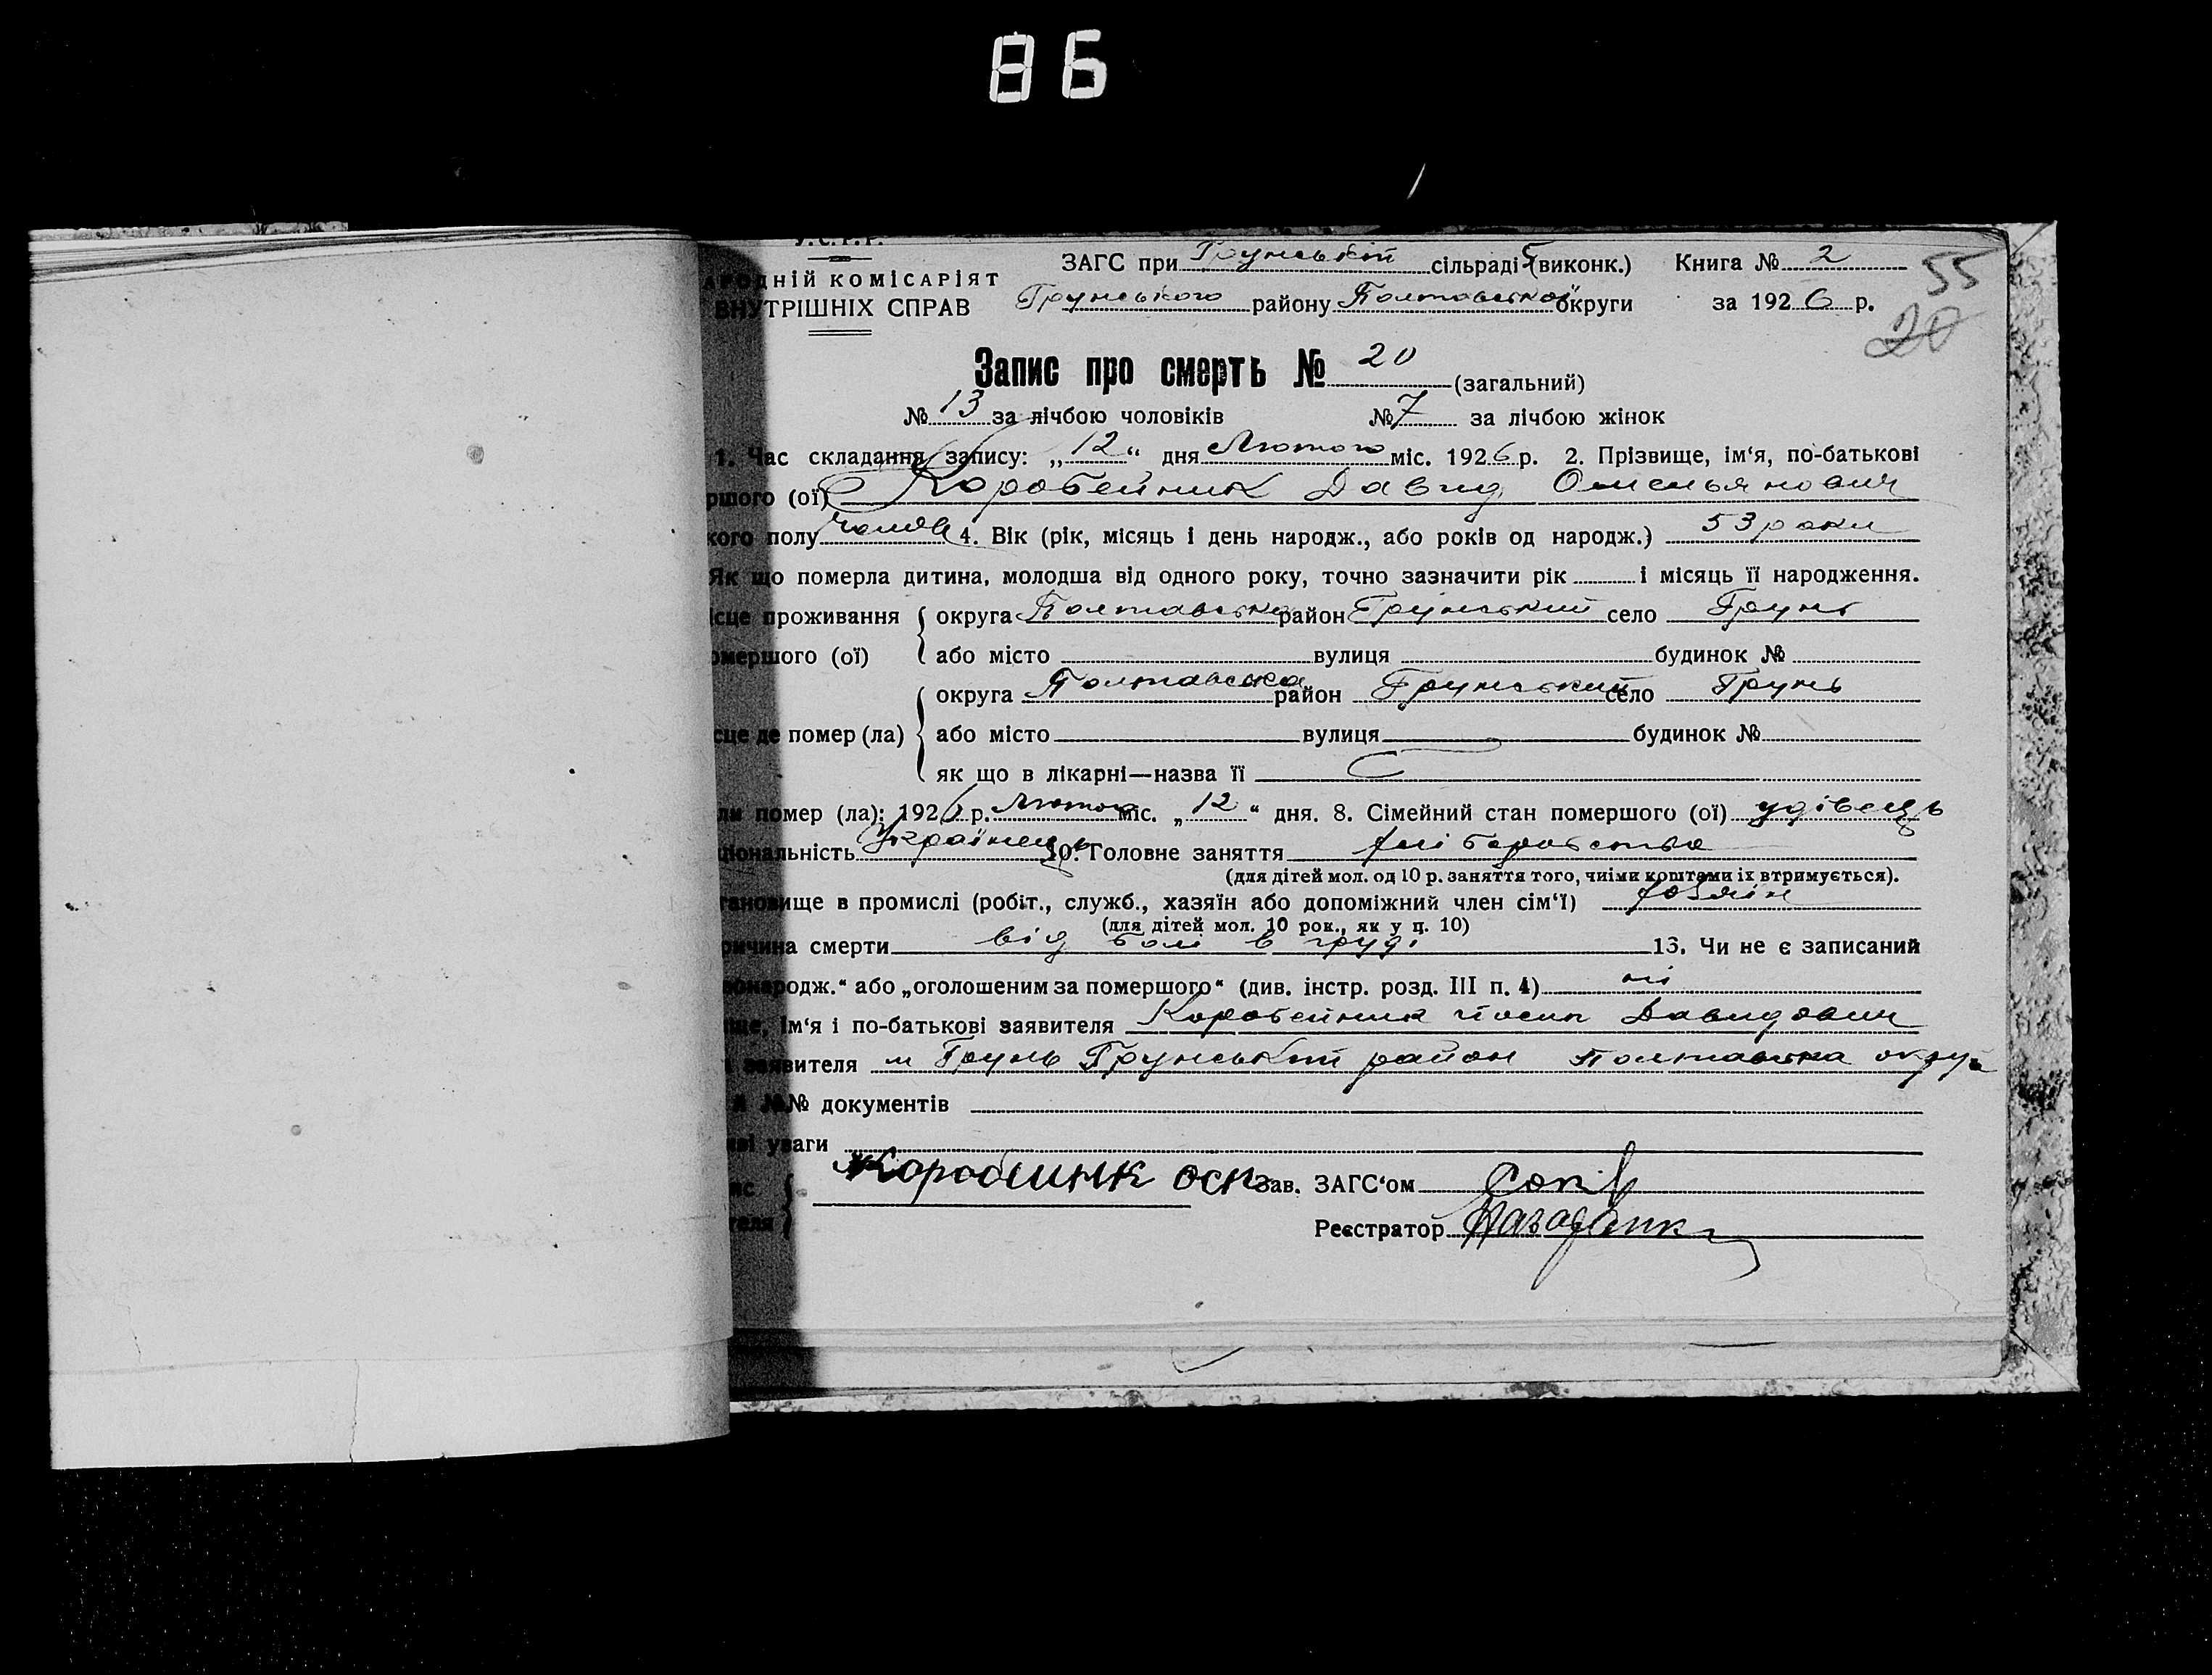 86
У.С.Р.Р.
НАРОДНІЙ КОМІСАРІЯТ
ВНУТРІШНІХ СПРАВ
ЗАГС при Грунській сільраді (виконк.) Книга № 2
55
Грунського району Полтавської округи за 1926 р.
20
Запис про смерть № 20 (загальний)
№ 13 за лічбою чоловіків № 7 за лічбою жінок
1. Час складання запису: „12“ дня Лютого міс. 1926 р. 2. Прізвище, ім‘я, по-батькові
ршого (ої) Коробейник Давид Омельянович
кого полу чолов 4. Вік (рік, місяць і день народж., або років од народж.) 53 роки
Як що померла дитина, молодша від одного року, точно зазначити рік і місяць її народження.
ісце проживання округа Полтавська район Грунський село Грунь
омершого (ої) або місто вулиця будинок №
округа Полтавська район Грунський село Грунь
сце де помер (ла) або місто вулиця будинок №
як що в лікарні—назва її
ли помер (ла): 1926 р. Лютого міс. „12“ дня. 8. Сімейний стан помершого (ої) удівець
ціональність Українець 10. Головне заняття хліборобство
(для дітей мол. од 10 р. заняття того, чиіми коштами іх втримується).
тановище в промислі (робіт., служб., хазяїн або допоміжний член сім‘ї) хозяїн
(для дітей мол. 10 рок., як у п. 10)
ричина смерти від болі в груді 13. Чи не є записаний
вонародж.“ або „оголошеним за помершого“ (див. інстр. розд. III п. 4) ні
ще, ім‘я і по-батькові заявителя Коробейник Йосип Давидович
заявителя м Грунь Грунський район Полтавська округа
й №№ документів
ві уваги
Коробиинк осип Зав. ЗАГС‘ом
теля Реєстратор